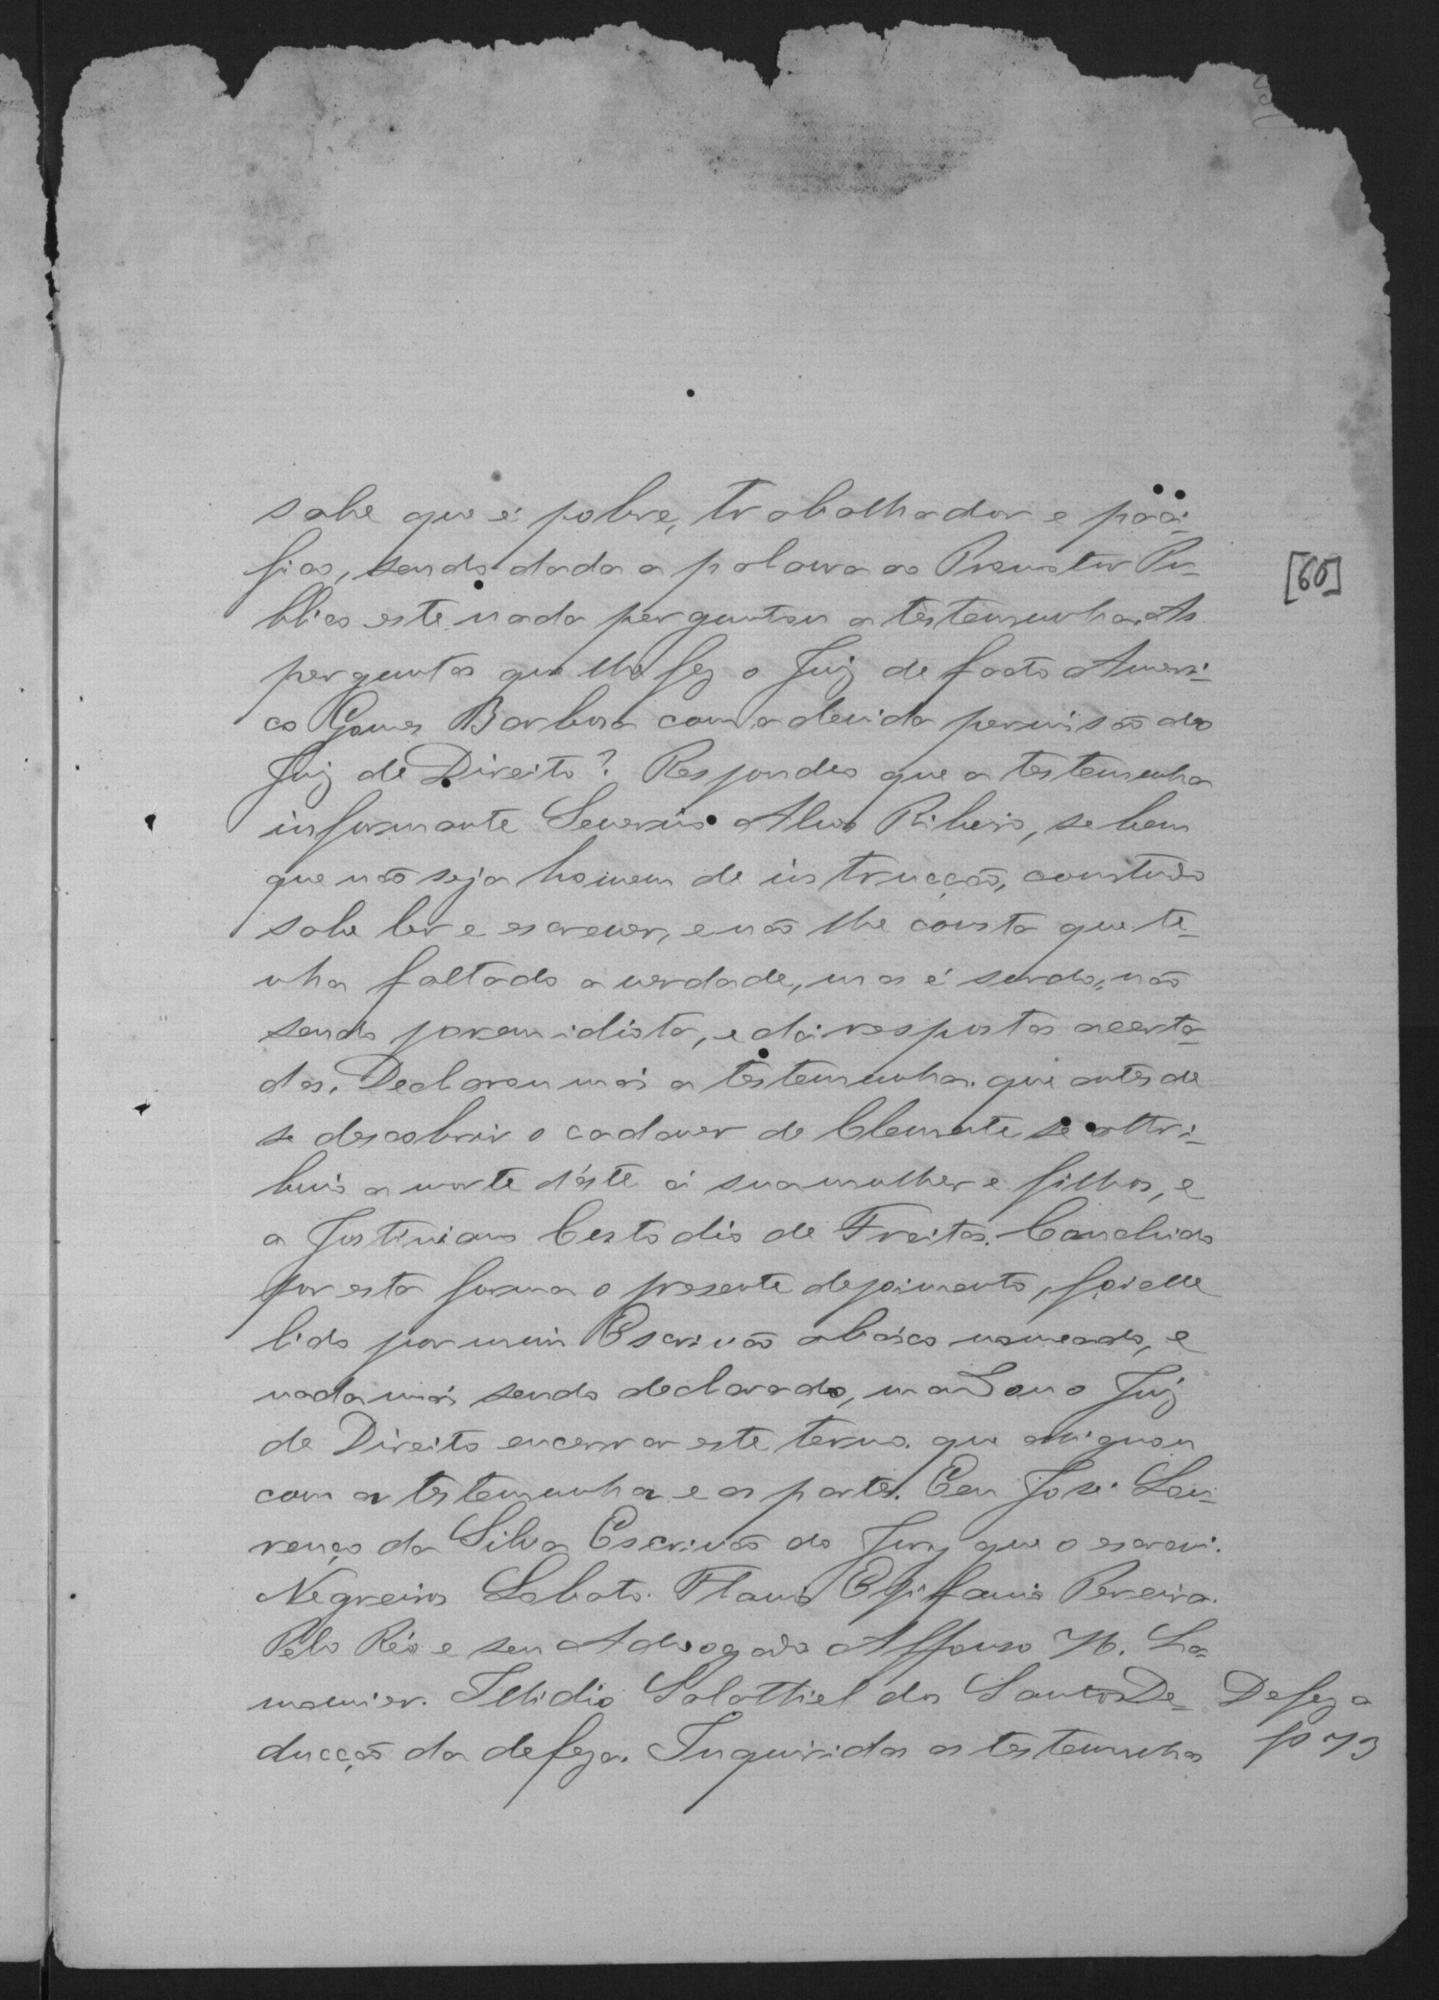 sabe que é pobre, trabalhador e paci-
fico, sendo dada a palavra ao Promotor Pu-
blico este nada perguntou a testemunha. As
perguntas que lhe fez o Juiz de facto Ameri-
co Gomes Barbosa com a devida permissão do
Juiz de Direito? Respondeo que a testemunha
informante Severino Alves Ribeiro, se bem
que não seja homem de instrucção, comtudo
sabe ler e escrever, e não lhe consta que te-
nha faltado a verdade, mas é surdo, não
sendo porem idiota, e dá respostas acerta-
das. Declarou mais a testemunha que antes de
se descobrir o cadaver de Clemente se attri-
buio a morte d'éste á sua mulher e filhos, e
a Justiniano Custodio de Freitas. Concluido
por esta forma o presente depoimento, foi elle
lido por mim Escrivão abaixo nomeado, e
nada mais sendo declarado, mandou o Juiz
de Direito encerrar este termo que assignou
com a testemunha e as partes. Eu José Lou-
renço da Silva Escrivão do Jury que o escrevi.
Negreiros Lobato. Flavio Epifanio Pereira.
Pelo Réo e seu Advogado Affonso H. La-
mounier. Illidio Salathiel dos Santos De-
ducção da defeza. Inquiridas as testemunhas
[60]
Defeza
p 73